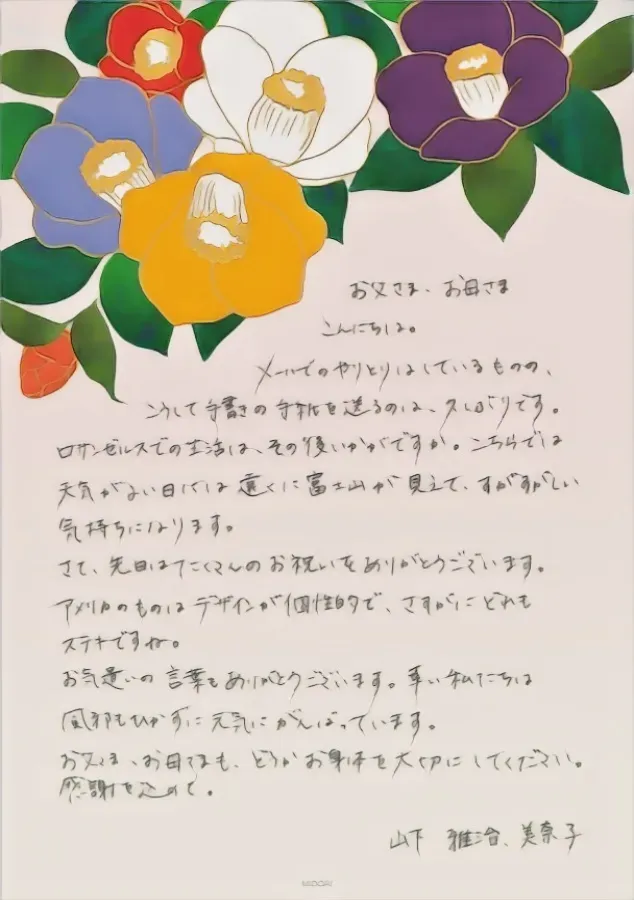 お父さま、お母さま
こんにちは。
メールでのやりとりはしているものの、
こうして手書きの手紙を送るのは、久しぶりです。
ロサンゼルスでの生活は、その後いかがですか。こちらでは
天気がよい日には遠くに富士山が見えて、すがすがしい
気持ちになります。
さて、先日はたくさんのお祝いをありがとうございます。
アメリカのものはデザインが個性的で、さすがにどれも
ステキですね。
お気遣いの言葉もありがとうございます。幸い私たちは
風邪もひかずに元気にがんばっています。
お父さま、お母さまも、どうかお身体を大切にしてください。
感謝を込めて。
山下 雅治、美奈子
MIDORI